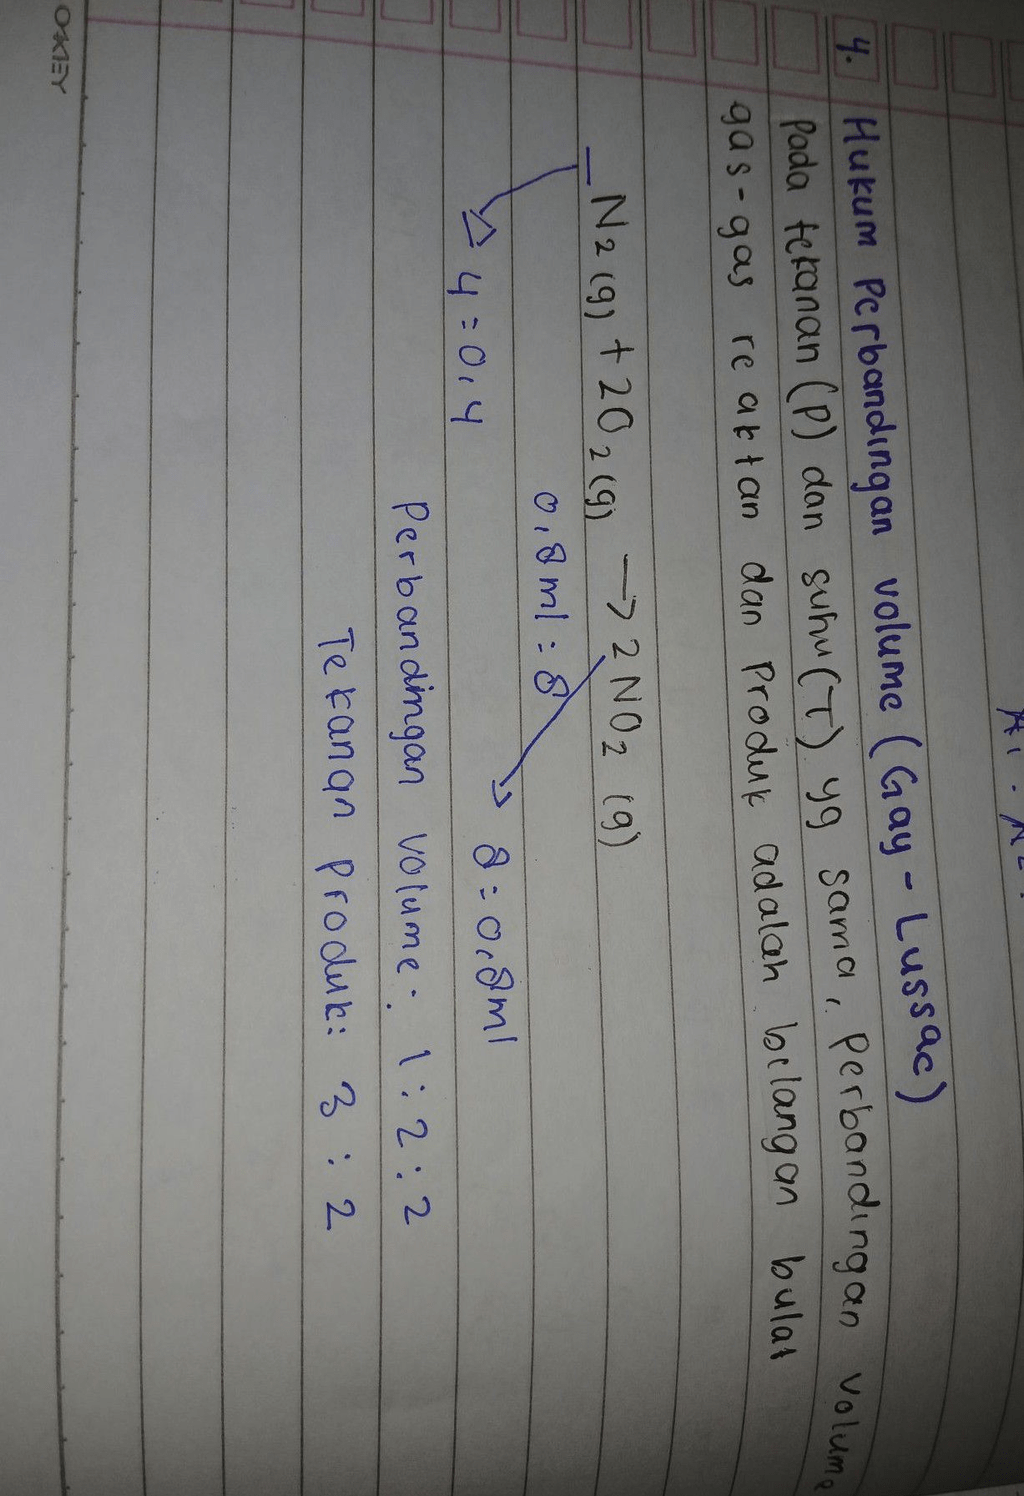 4. Hukum Perbandingan volume (Gay-Lussac)
Pada tekanan (P) dan suhu (T) yg sama, Perbandingan volume
gas-gas reaktan dan Produk adalah bilangan bulat
_N₂(g) + 2O₂(g) → 2NO₂ (g)
0,8ml : 8
4 = 0,4
8 = 0,8ml
Perbandingan volume : 1 : 2 : 2
Tekanan Produk : 3 : 2
OKEY